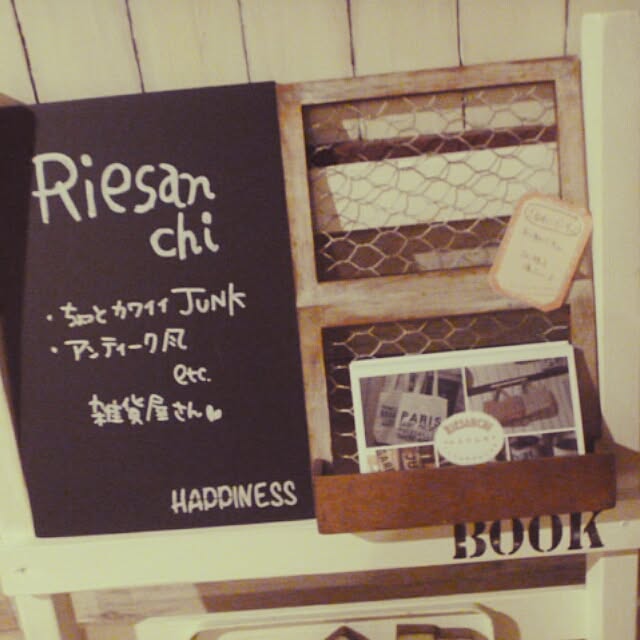 Riesan
chi
・ちょっとカワイイ JUNK
・アンティーク風
etc.
雑貨屋さん♥
HAPPINESS
PARIS
RIESANCHI
BOOK